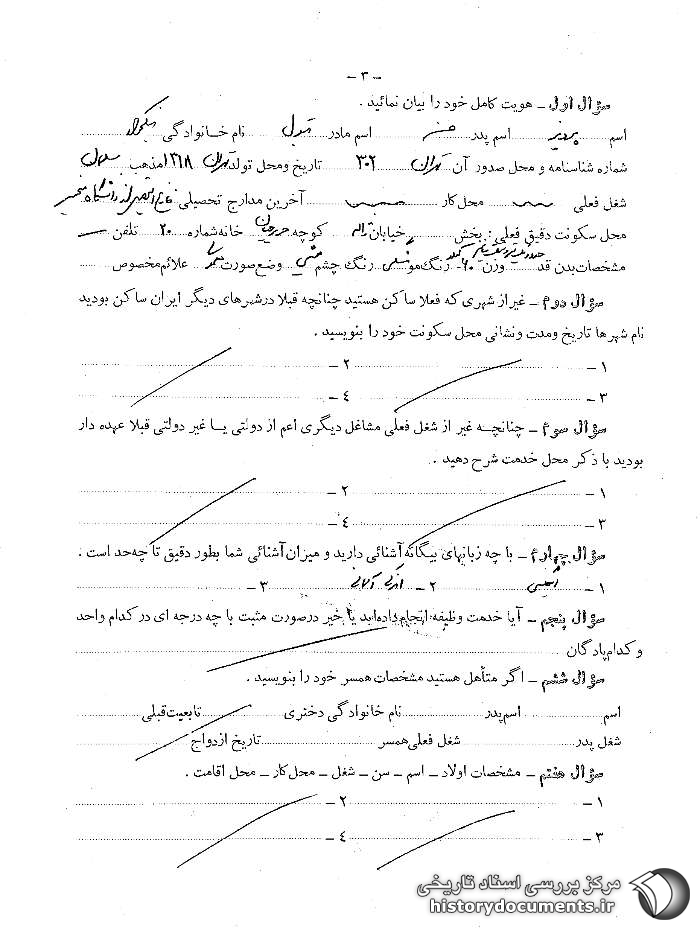 - ۳ -
سؤال اول ـ هویت کامل خود را بیان نمائید .
اسم پرویز اسم پدر حسن اسم مادر بتول نام خانوادگی
شماره شناسنامه و محل صدور آن تهران ۳۰۲ تاریخ ومحل تولد تهران ۱۳۱۸ مذهب
شغل فعلی محل کار آخرین مدارج تحصیلی فارغ التحصیل از دانشگاه
محل سکونت دقیق فعلی : بخش خیابان ژاله کوچه خانه شماره ۲۰ تلفن
مشخصات بدن قد وزن ۶۰ کیلو رنگ مو رنگ چشم وضع صورت علائم مخصوص
سؤال دوم ـ غیر از شهری که فعلا ساکن هستید چنانچه قبلا در شهرهای دیگر ایران ساکن بودید
نام شهرها تاریخ ومدت ونشانی محل سکونت خود را بنویسید .
۱ - ۲ -
۳ - ٤ -
سؤال سوم ـ چنانچه غیر از شغل فعلی مشاغل دیگری اعم از دولتی یا غیر دولتی قبلا عهده دار
بودید با ذکر محل خدمت شرح دهید .
۱ - ۲ -
۳ - ٤ -
سؤال چهارم ـ با چه زبانهای بیگانه آشنائی دارید و میزان آشنائی شما بطور دقیق تا چه حد است .
۱ - انگلیسی ۲ - آلمانی ۳ -
سؤال پنجم ـ آیا خدمت وظیفه انجام داده اید یا خیر درصورت مثبت با چه درجه ای در کدام واحد
و کدام پادگان
سؤال ششم ـ اگر متأهل هستید مشخصات همسر خود را بنویسید .
اسم اسم پدر نام خانوادگی دختری تابعیت قبلی
شغل پدر شغل فعلی همسر تاریخ ازدواج
سؤال هفتم ـ مشخصات اولاد ـ اسم ـ سن ـ شغل ـ محل کار ـ محل اقامت .
۱ - ۲ -
۳ - ٤ -
مرکز بررسی اسناد تاریخی
historydocuments.ir